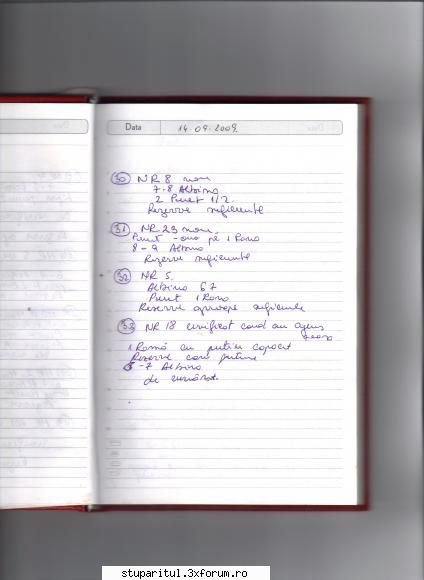 Data 14.09.2009.
30 NR 8 nou
7-8 Albine
2 Puiet 1/2.
Rezerve suficiente
31 NR 23 nou
Puiet - oua pe 1 Rama
8-9 Albine
Rezerve suficiente
32 NR 5.
Albine 6 7
Puiet 1 Rama
Rezerve aproape suficiente
33 NR 18 unificat cand au ajuns
1 Ramă cu puțin capacit
Rezerve cam puține
6-7 Albine
de urmărit.
stuparitul.3xforum.ro